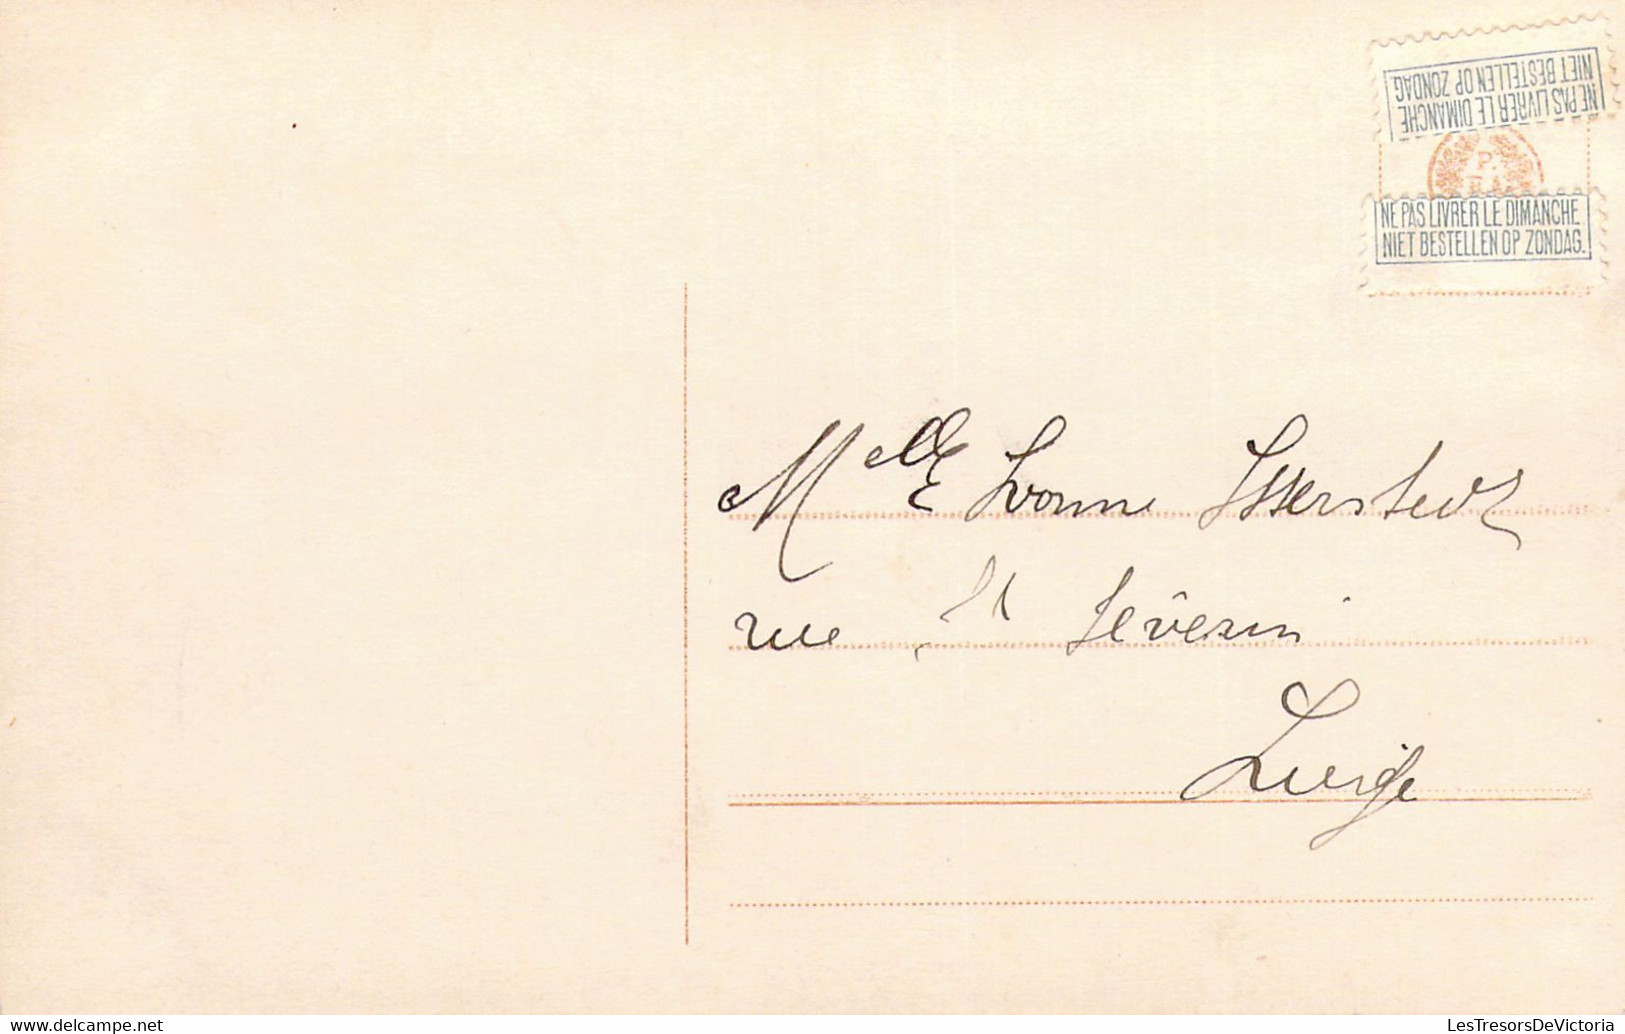 NE PAS LIVRER LE DIMANCHE
NIET BESTELLEN OP ZONDAG.
P.
NE PAS LIVRER LE DIMANCHE
NIET BESTELLEN OP ZONDAG.
Melle Ivonne Isserstedt
rue St Sêverin
Liège
LesTresorsDeVictoria